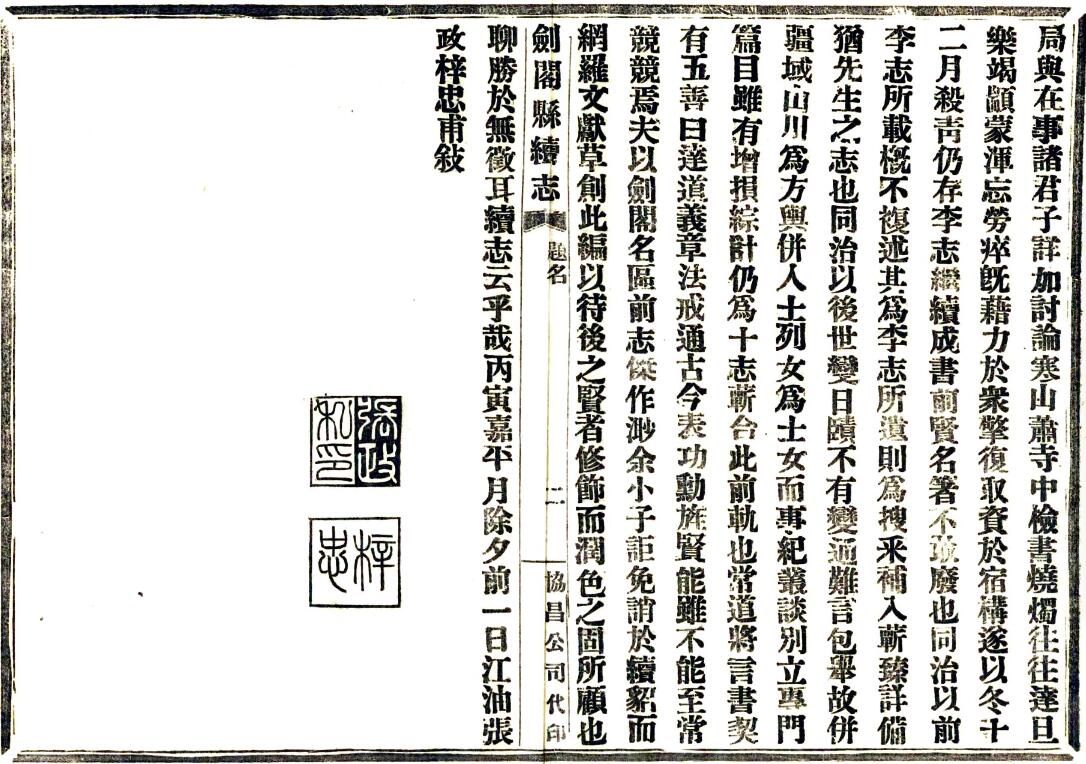 局與在事諸君子詳加討論寒山蕭寺中檢書燒燭往往達旦
樂竭顓蒙渾忘勞瘁旣藉力於衆擎復取資於宿構遂以冬十
二月殺靑仍存李志繼續成書前賢名箸不敢廢也同治以前
李志所載槪不複述其爲李志所遺則爲搜釆補入蘄臻詳備
猶先生之志也同治以後世變日賾不有變通難言包舉故併
疆域山川爲方輿併人士列女爲士女而事紀叢談別立專門
篇目雖有增損綜計仍爲十志蘄合此前軌也常道將言書契
有五善曰達道義章法戒通古今表功勳旌賢能雖不能至常
競競焉夫以劍閣名區前志傑作渺余小子詎免誚於續貂而
網羅文獻草創此編以待後之賢者修飾而潤色之固所願也
劍閣縣續志 題名 二 協昌公司代印
聊勝於無徵耳續志云乎哉丙寅嘉平月除夕前一日江油張
政梓忠甫敍
張政私印
梓忠